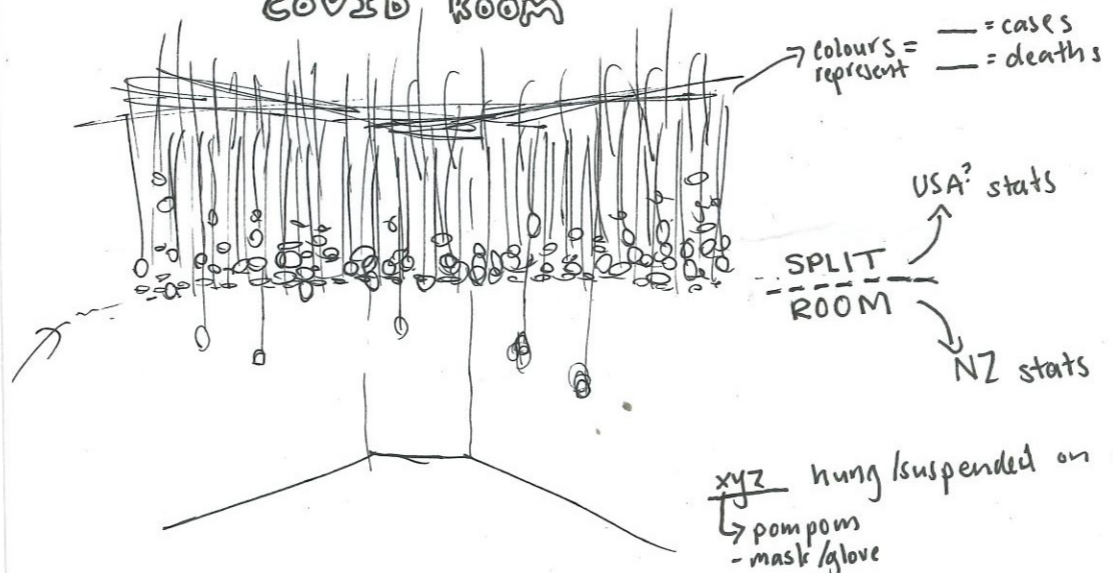 COVID ROOM
colours = ___ = cases
represent ___ = deaths
USA? stats
SPLIT
ROOM
NZ stats
xyz hung/suspended on
↳ pompom
- mask/glove